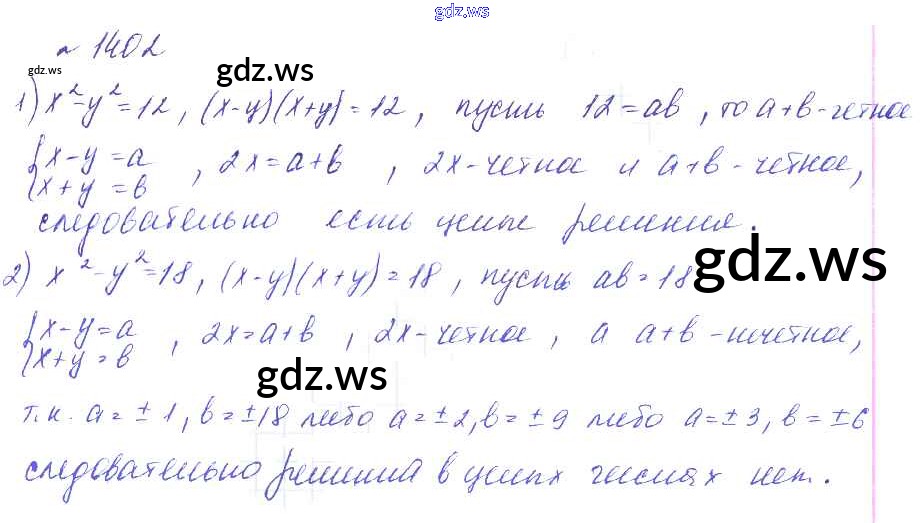 gdz.ws
№ 1402
gdz.ws
gdz.ws
1) x²-y²=12, (x-y)(x+y)=12, пусть 12=ab, то a+b-четное
{x-y=a
{x+y=b , 2x=a+b , 2x-четное и a+b-четное,
следовательно есть целые решения.
2) x²-y²=18, (x-y)(x+y)=18, пусть ab=18
gdz.ws
{x-y=a
{x+y=b , 2x=a+b , 2x-четное, а a+b-нечетное,
gdz.ws
т.к. a=±1, b=±18 либо a=±2, b=±9 либо a=±3, b=±6
следовательно решений в целых числах нет.